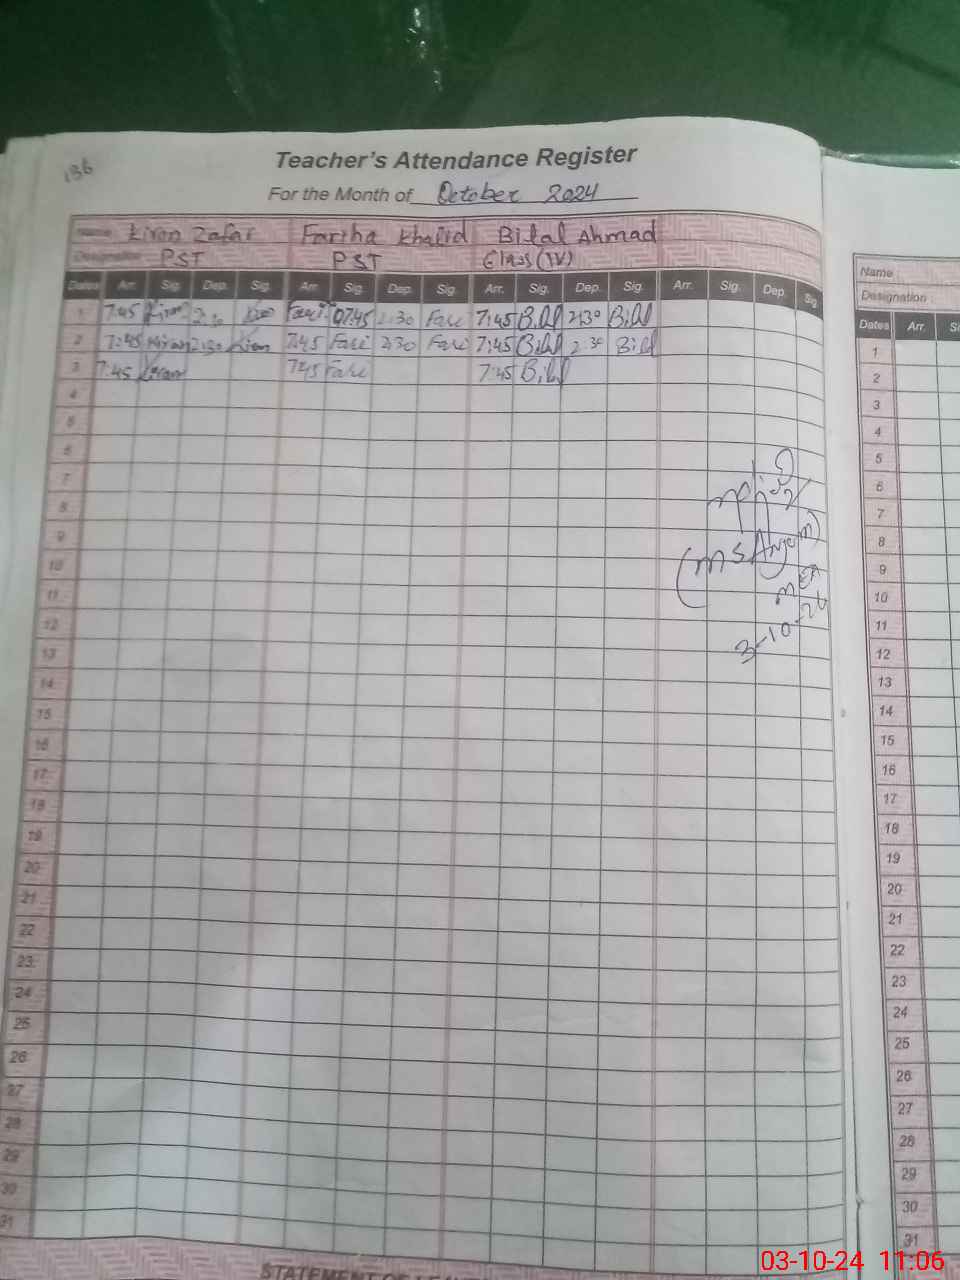 136
Teacher's Attendance Register
For the Month of October 2024
Name Kiran Zafar Fariha Khalid Bilal Ahmad
Designation PST PST Class (IV)
Dates Arr. Sig. Dep. Sig. Arr. Sig. Dep. Sig. Arr. Sig. Dep. Sig. Arr. Sig. Dep. Sig
1 7:45 Kiran 2:30 Fari 07:45 2:30 Fari 7:45 Bilal 2:30 Bilal
2 7:45 Kiran 2:30 Kiran 7:45 Fari 2:30 Fari 7:45 Bilal 2:30 Bilal
3 7:45 Kiran 7:45 Fari 7:45 Bilal
4
5
6
7
8
9
10
11
12
13
14
15
16
17
18
19
20
21
22
23
24
25
26
27
28
29
30
31
(MS Anjum)
MEA
3-10-24
STATEMENT OF
Name
Designation
Dates Arr.
1
2
3
4
5
6
7
8
9
10
11
12
13
14
15
16
17
18
19
20
21
22
23
24
25
26
27
28
29
30
31
03-10-24 11:06